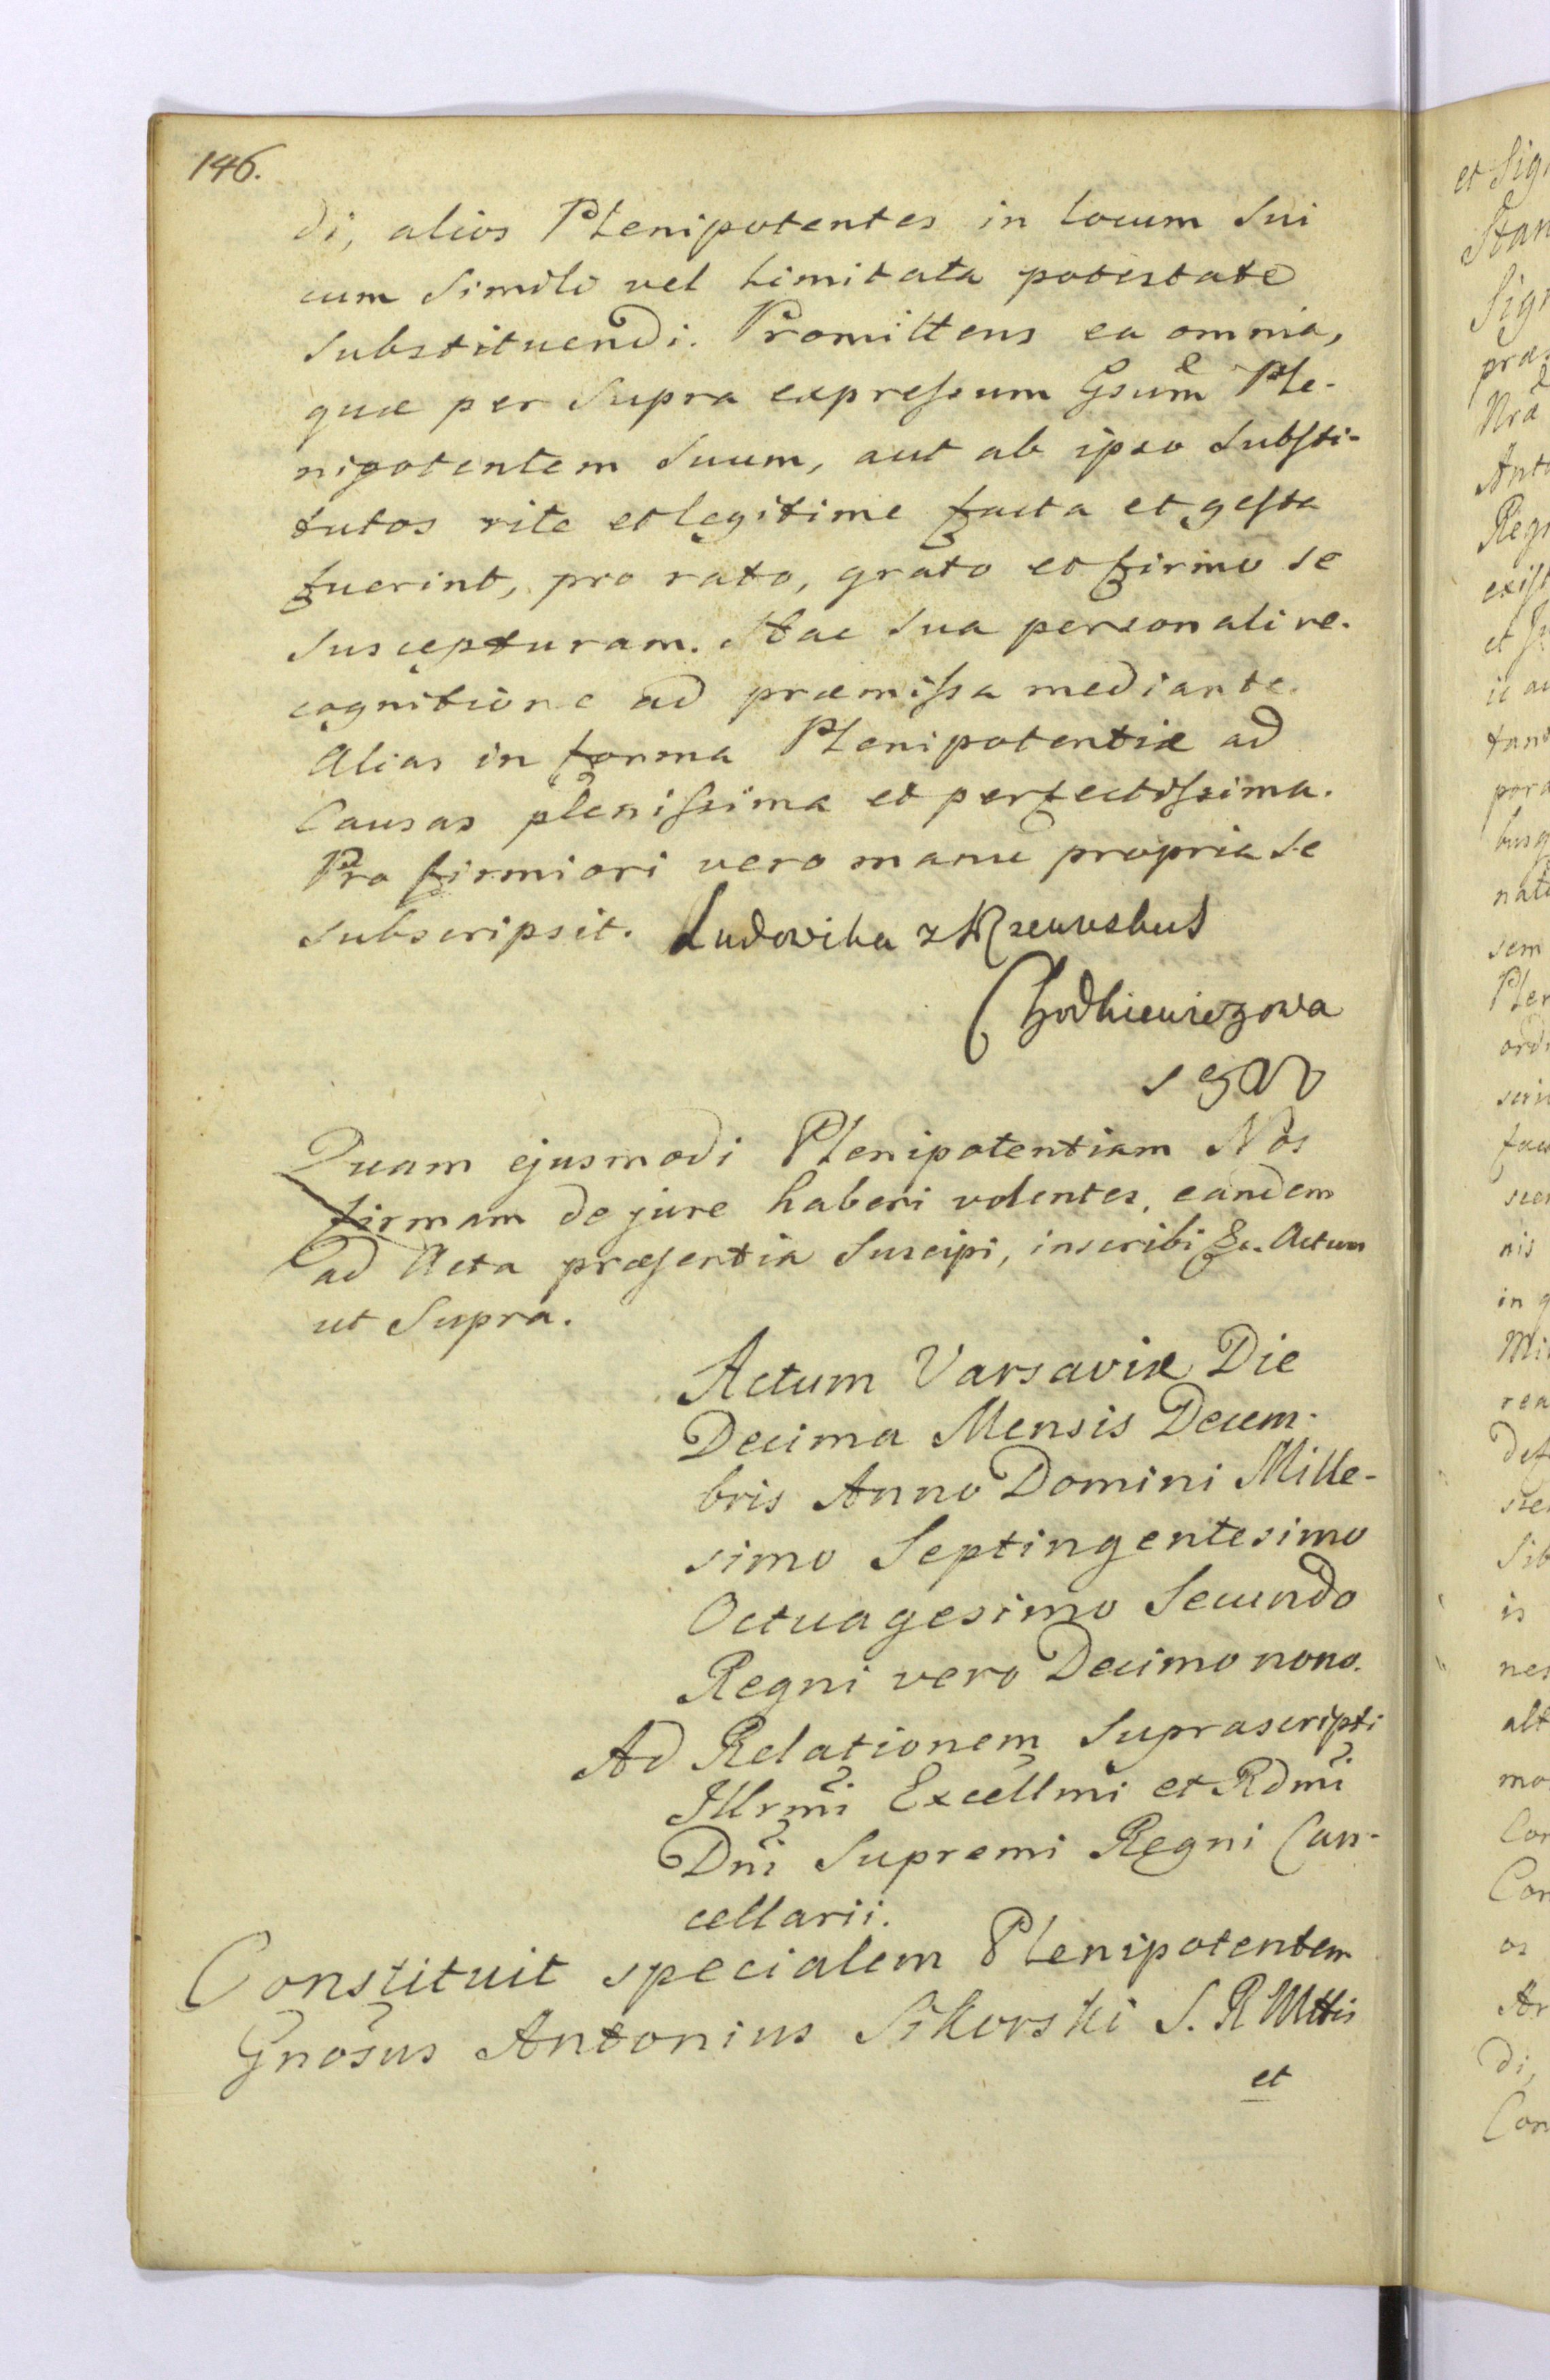 146.
di, alios Plenipotentes in locum Sui
cum Simili vel Limitata potestate
Substituendi. Promittens ea omnia,
quæ per Supra expreſsum Gsum̃ Ple-
nipotentem Suum, aut ab ipso Subſti-
tutos rite et legitime facta et geſta
fuerint, pro rato, grato et firmo se
Suscepturam. Hac Sua personali re-
cognitione ad præmiſsa mediante.
Alias in forma Plenipotentiæ ad
Causas pleniſsima et perfectiſsima.
Pro firmiori vero manu propria se
Subscripsit. Ludowika z Rzewuskich
Chodkiewiczowa
Quam ejusmodi Plenipotentiam Nos
firmam de jure haberi volentes, eandem
ad Acta præſentia Suscipi, inscribi &c. Actum
ut Supra.
Actum Varsaviæ Die
Decima Mensis Decem-
bris Anno Domini Mille-
simo Septingentesimo
Octuagesimo Secundo
Regni vero Decimo nono.
Ad Relationem Suprascripti
Illrmi Excellmi et Rdmi
Dni Supremi Regni Can-
cellarii.
Constituit specialem Plenipotentem
Gnosus Antonius Sikorski S. R Mttis
et
et Sig
Stan
Sig
præ
Nrã
Anto
Reg
exiſt
et
tand
por
nat
sem
Plen
ord
nis
in
Mi
rea
def
Sib
is
nes
alt
mo
Con
Con
os
Ar
di,
Con